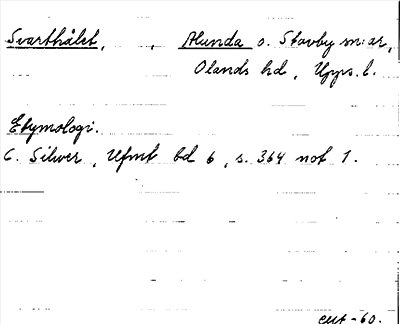 Svarthålet, , Alunda o. Stavby snar,
Olands hd, Upps. l.
Etymologi.
C. Silwer, Ufmt bd 6, s. 364 not 1.
-60.